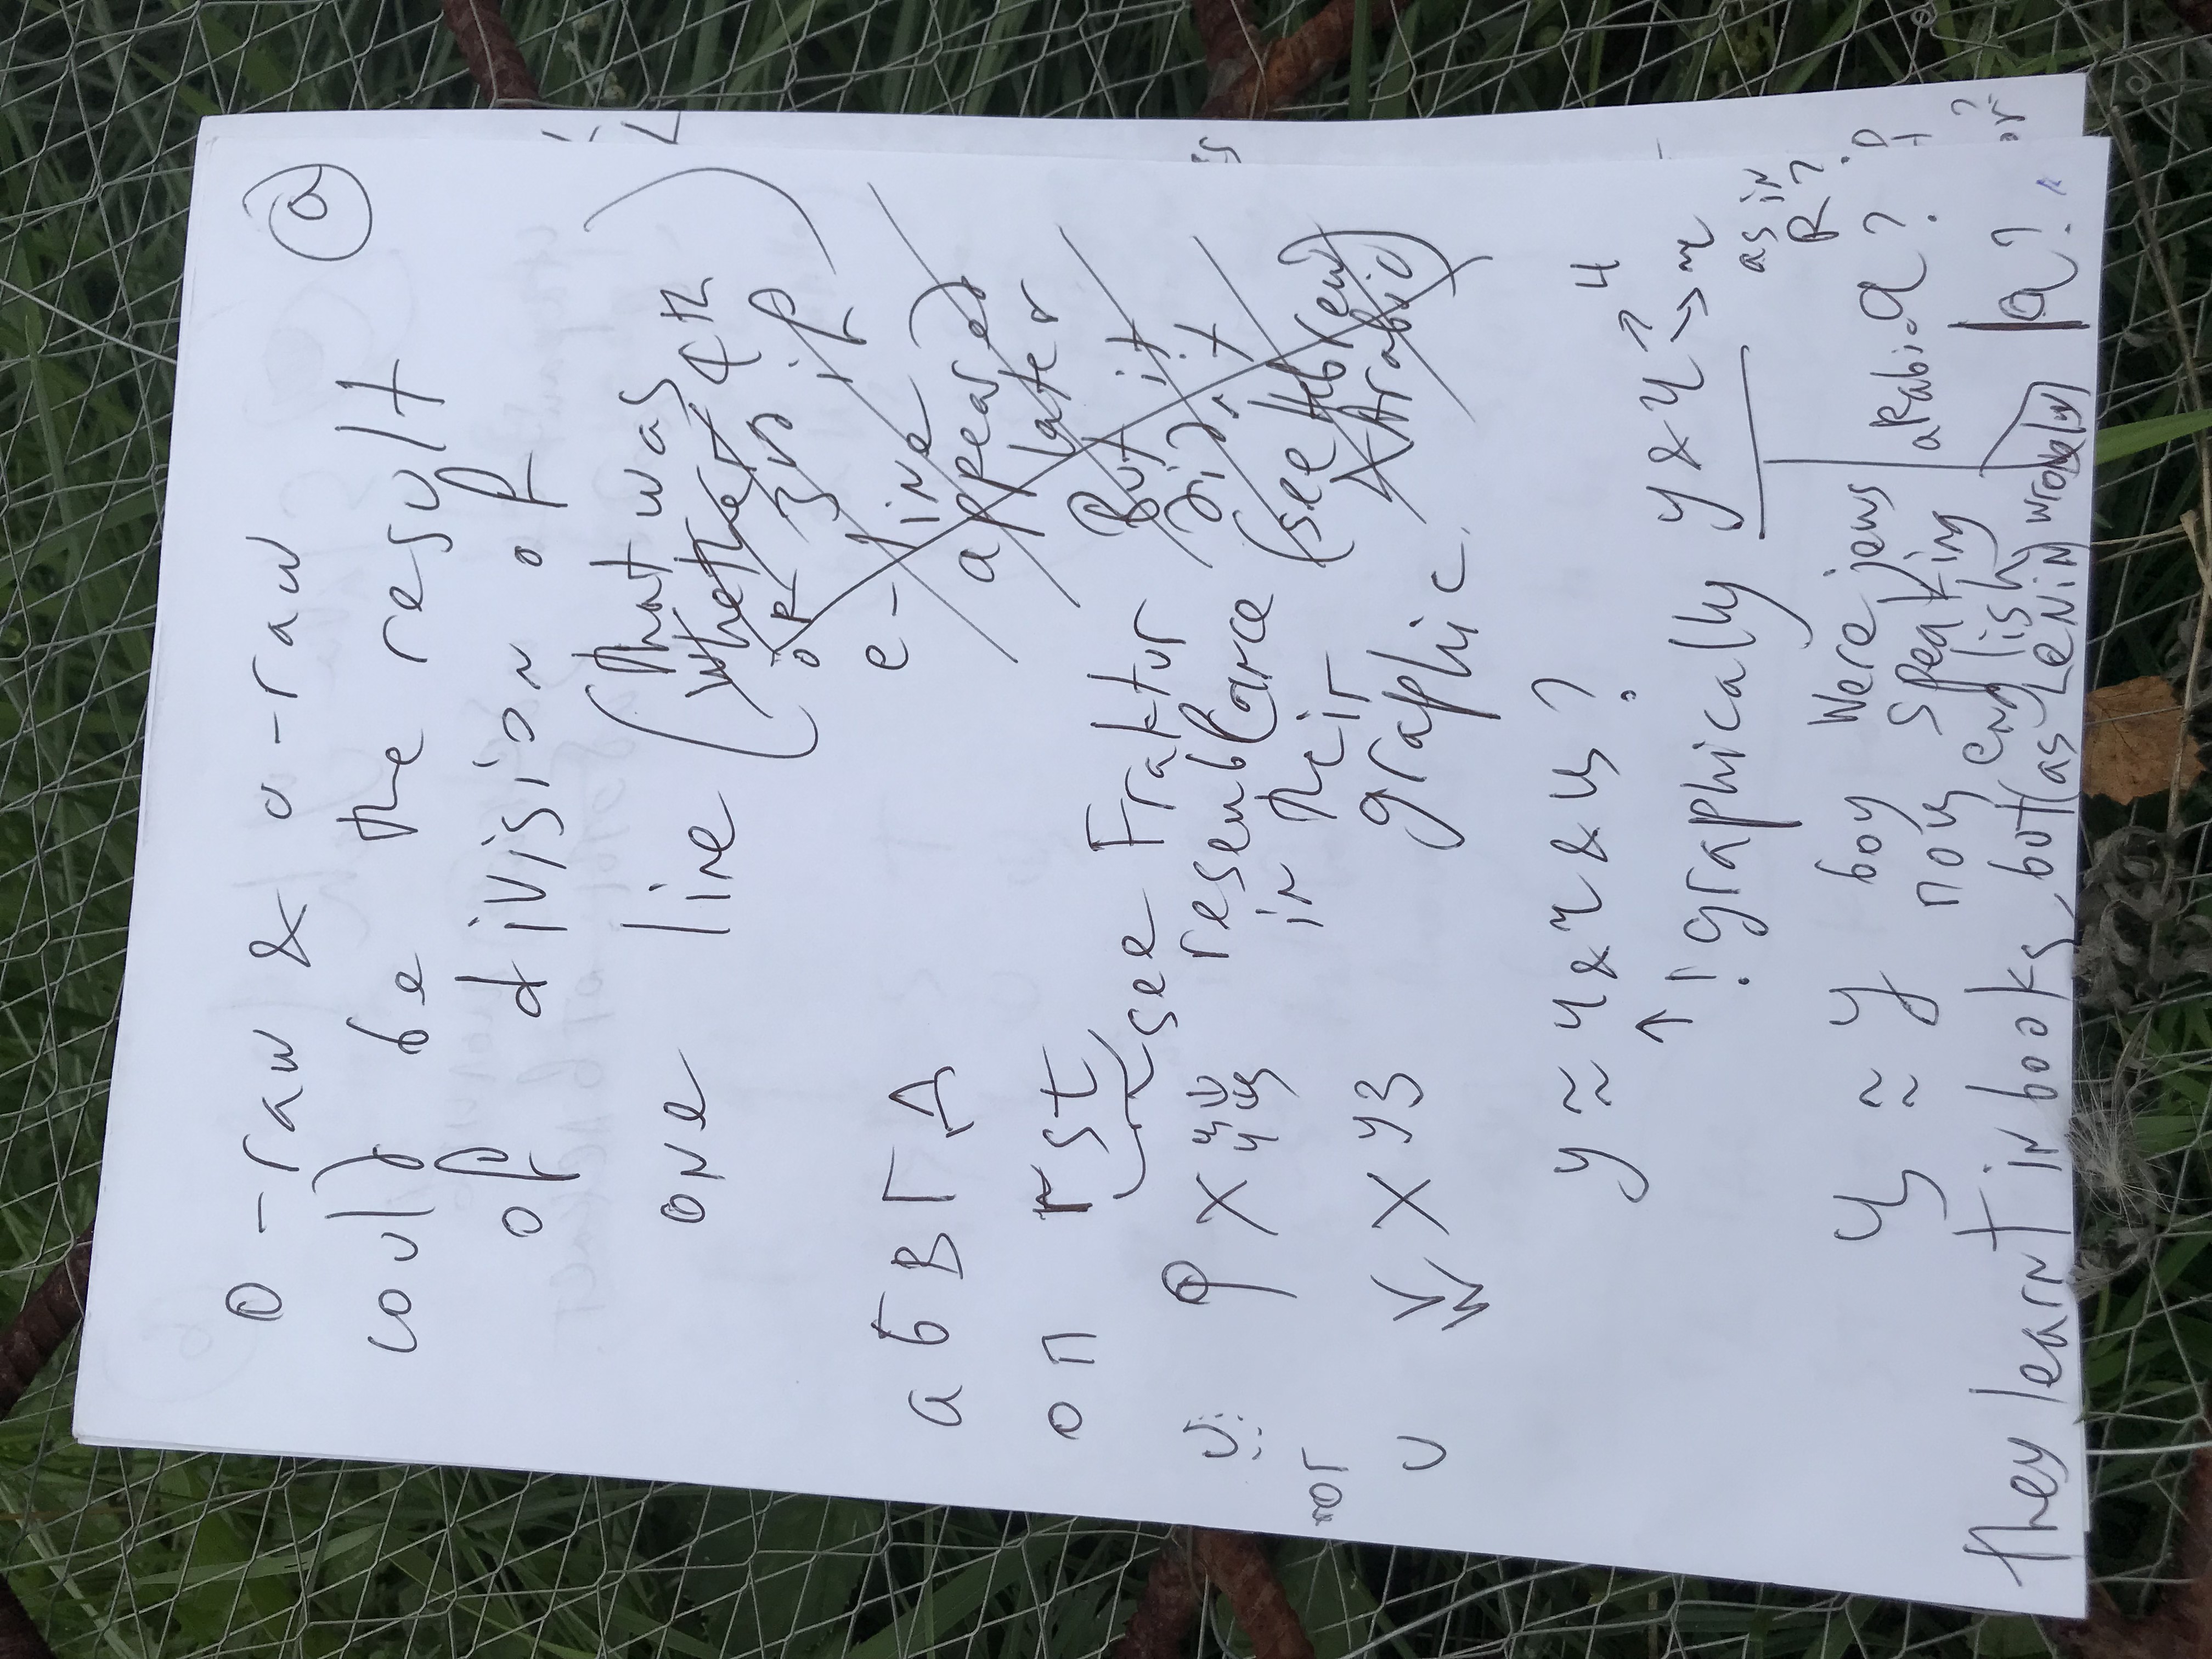 o-raw & o-raw
a
could be the result
of division of
one line (that was
whether 4th
or 3rd if
e-line
appeared
later
But it
didn't
(see Hebrew
& Arabic)
а б в г д
о п rst
see Fraktur
resemblance
in their
graphic.
υ φ χ
nor
υ v x y з
w
y ≈ ч & & ц ?
↑ ! graphically y & ч → 4
as in
R?
ц ≈ y boy
поц
Were jews
speaking
english
(as Lenin)
arabic q?
they learnt in books, but wrongly q?